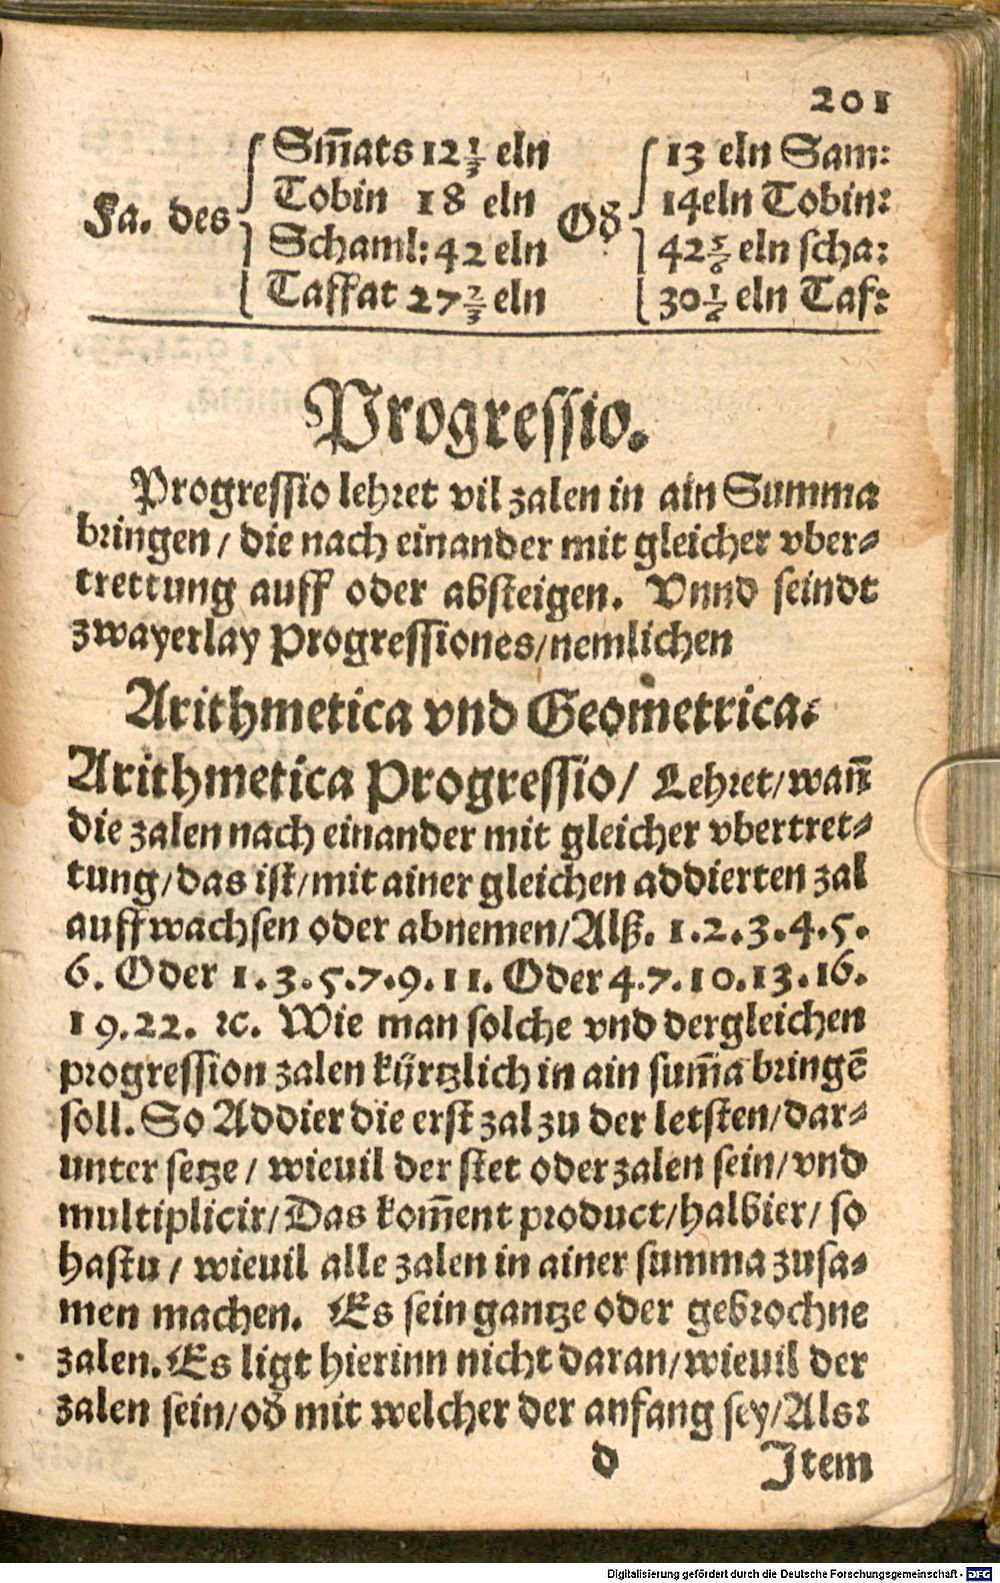 201
Sm̃ats 12 1/3 eln 13 eln Sam:
Tobin 18 eln 14eln Tobin:
Fa. des Od
Schaml: 42 eln 42 5/6 eln scha:
Taffat 27 2/3 eln 30 1/6 eln Taf:
Progressio.
Progressio lehret vil zalen in ain Summa
bringen / die nach einander mit gleicher vber-
trettung auff oder absteigen. Vnnd seindt
zwayerlay Progressiones/nemlichen
Arithmetica vnd Geometrica.
Arithmetica Progressio/ Lehret/wañ
die zalen nach einander mit gleicher vbertret-
tung/das ist/mit ainer gleichen addierten zal
auffwachsen oder abnemen/Alß. 1.2.3.4.5.
6. Oder 1.3.5.7.9.11. Oder 4.7.10.13.16.
19.22. ꝛc. Wie man solche vnd dergleichen
progression zalen kürtzlich in ain sum̃a bringẽ
soll. So Addier die erst zal zu der letsten/dar-
unter setze / wieuil der stet oder zalen sein/vnd
multiplicir/Das kom̃ent product/halbier/ so
hastu / wieuil alle zalen in ainer summa zusa-
men machen. Es sein gantze oder gebrochne
zalen. Es ligt hierinn nicht daran/wieuil der
zalen sein/od mit welcher der anfang sey/Als:
d Item
Digitalisierung gefördert durch die Deutsche Forschungsgemeinschaft - DFG